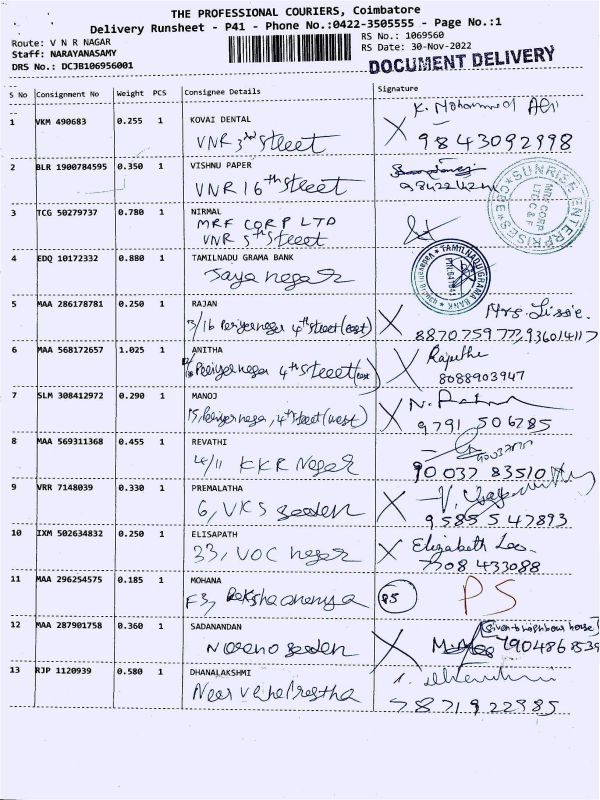 THE PROFESSIONAL COURIERS, Coimbatore
Delivery Runsheet - P41 - Phone No.:0422-3505555 - Page No.:1
Route: V N R NAGAR
Staff: NARAYANASAMY
DRS No.: DCJB106956001
RS No.: 1069560
RS Date: 30-Nov-2022
DOCUMENT DELIVERY
S No Consignment No Weight PCS Consignee Details Signature
1 VKM 490683 0.255 1 KOVAI DENTAL K. Mohammed Ali
VNR 3rd Street 9843092998
2 BLR 1900784595 0.350 1 VISHNU PAPER
VNR 16th Street
SUNRISE ENTERPRISES * CBE *
MRF CORP LTD C & F
3 TCG 50279737 0.780 1 NIRMAL
MRF CORP LTD
VNR 5th Street
4 EDQ 10172332 0.880 1 TAMILNADU GRAMA BANK
Jaya nagar
TAMILNADU GRAMA BANK
5 MAA 286178781 0.250 1 RAJAN Mrs. Lissie.
3/16 Periyernagar 4th Street (east) 8870759777, 936014117
6 MAA 568172657 1.025 1 ANITHA
Periyernagar 4th Street (east 8088903947
7 SLM 308412972 0.290 1 MANOJ
15, Periyernagar, 4th Street (west) 9791 506785
8 MAA 569311368 0.455 1 REVATHI
4/11 KKR Nagar 90037 83510
9 VRR 7148039 0.330 1 PREMALATHA
6, VKS garden 95855 47893
10 IXM 502634832 0.250 1 ELISAPATH Elizabeth Leo.
33, VOC nagar 7708 433088
11 MAA 296254575 0.185 1 MOHANA
F3, Rakshaananya 85 PS
12 MAA 287901758 0.360 1 SADANANDAN (Given to neighbour house)
garden 7904868539
13 RJP 1120939 0.580 1 DHANALAKSHMI
Near 7871922985